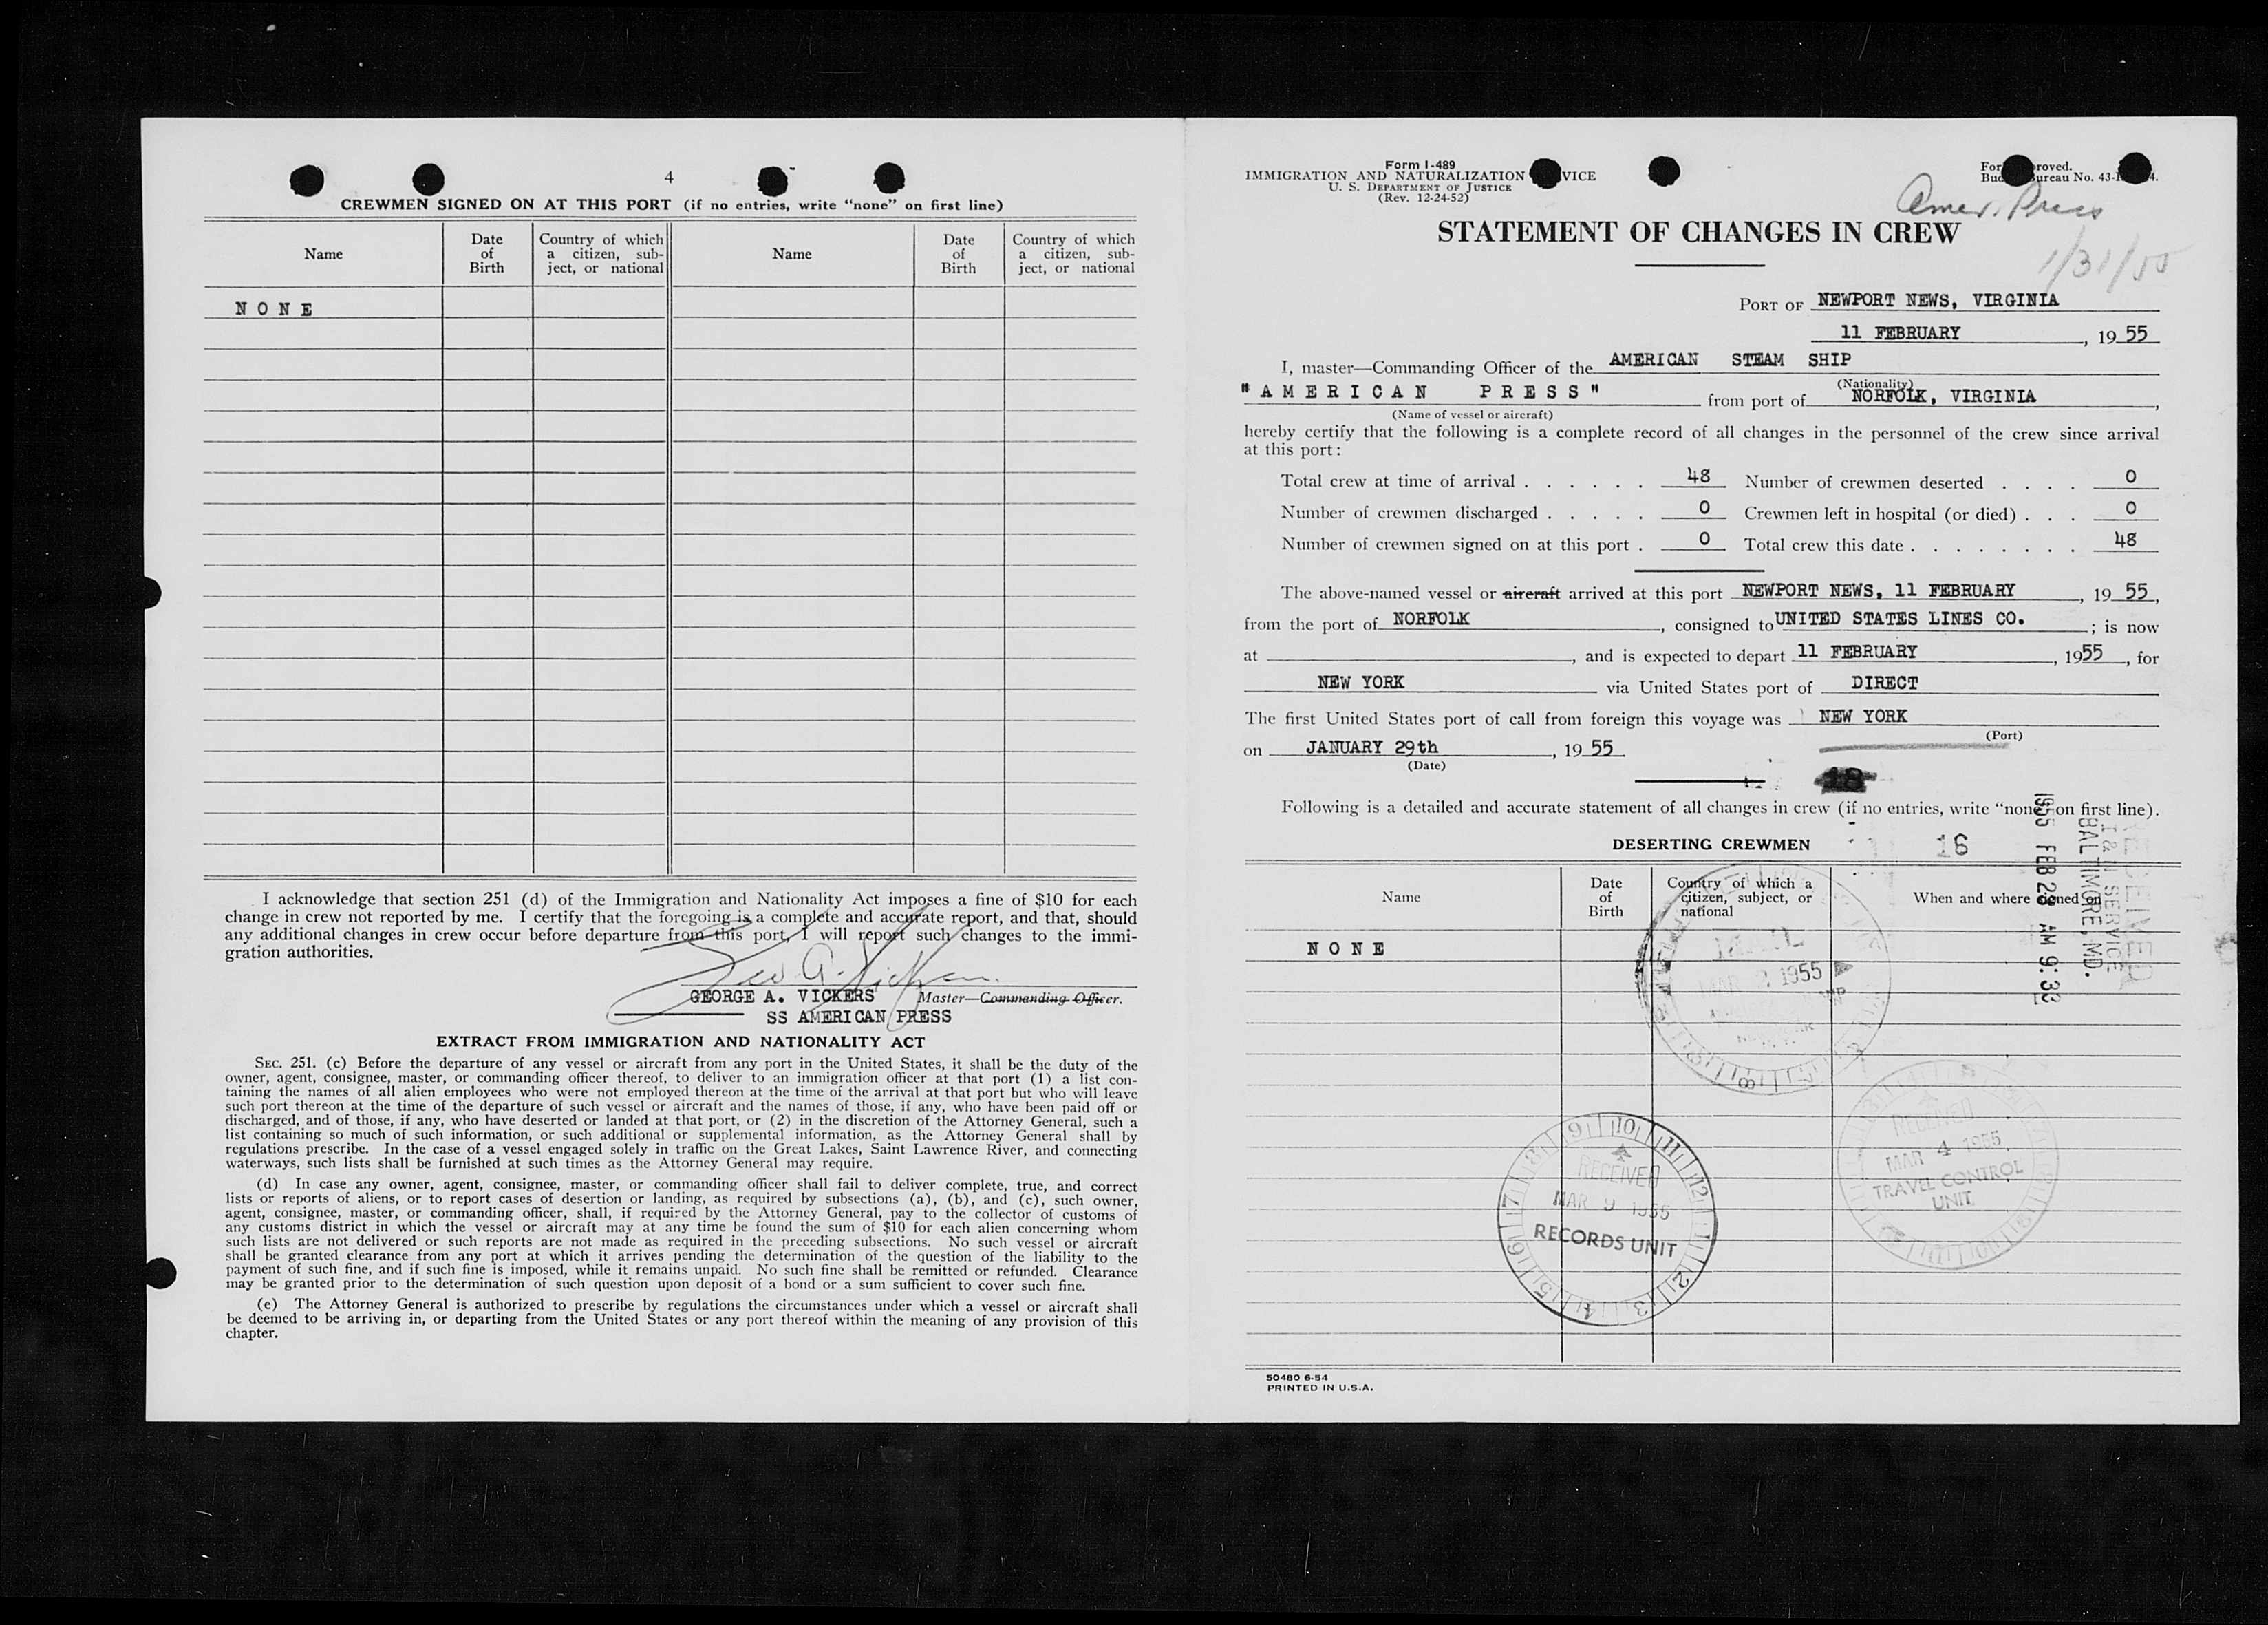 4
CREWMEN SIGNED ON AT THIS PORT (if no entries, write “none” on first line)
Name
Date of Birth
Country of which a citizen, subject, or national
Name
Date of Birth
Country of which a citizen, subject, or national
N O N E
I acknowledge that section 251 (d) of the Immigration and Nationality Act imposes a fine of $10 for each
change in crew not reported by me. I certify that the foregoing is a complete and accurate report, and that, should
any additional changes in crew occur before departure from this port, I will report such changes to the immi-
gration authorities.
Geo A. Vickers
GEORGE A. VICKERS Master—Commanding Officer.
SS AMERICAN PRESS
EXTRACT FROM IMMIGRATION AND NATIONALITY ACT
SEC. 251. (c) Before the departure of any vessel or aircraft from any port in the United States, it shall be the duty of the
owner, agent, consignee, master, or commanding officer thereof, to deliver to an immigration officer at that port (1) a list con-
taining the names of all alien employees who were not employed thereon at the time of the arrival at that port but who will leave
such port thereon at the time of the departure of such vessel or aircraft and the names of those, if any, who have been paid off or
discharged, and of those, if any, who have deserted or landed at that port, or (2) in the discretion of the Attorney General, such a
list containing so much of such information, or such additional or supplemental information, as the Attorney General shall by
regulations prescribe. In the case of a vessel engaged solely in traffic on the Great Lakes, Saint Lawrence River, and connecting
waterways, such lists shall be furnished at such times as the Attorney General may require.
(d) In case any owner, agent, consignee, master, or commanding officer shall fail to deliver complete, true, and correct
lists or reports of aliens, or to report cases of desertion or landing, as required by subsections (a), (b), and (c), such owner,
agent, consignee, master, or commanding officer, shall, if required by the Attorney General, pay to the collector of customs of
any customs district in which the vessel or aircraft may at any time be found the sum of $10 for each alien concerning whom
such lists are not delivered or such reports are not made as required in the preceding subsections. No such vessel or aircraft
shall be granted clearance from any port at which it arrives pending the determination of the question of the liability to the
payment of such fine, and if such fine is imposed, while it remains unpaid. No such fine shall be remitted or refunded. Clearance
may be granted prior to the determination of such question upon deposit of a bond or a sum sufficient to cover such fine.
(e) The Attorney General is authorized to prescribe by regulations the circumstances under which a vessel or aircraft shall
be deemed to be arriving in, or departing from the United States or any port thereof within the meaning of any provision of this
chapter.
Form I-489
IMMIGRATION AND NATURALIZATION VICE
U. S. DEPARTMENT OF JUSTICE
(Rev. 12-24-52)
For roved.
Bu ureau No. 43-
Amer. Press
1/31/55
STATEMENT OF CHANGES IN CREW
PORT OF NEWPORT NEWS, VIRGINIA
11 FEBRUARY , 19 55
I, master—Commanding Officer of the AMERICAN STEAM SHIP
(Nationality)
"A M E R I C A N P R E S S" from port of NORFOLK, VIRGINIA ,
(Name of vessel or aircraft)
hereby certify that the following is a complete record of all changes in the personnel of the crew since arrival
at this port:
Total crew at time of arrival . . . . . . 48 Number of crewmen deserted . . . . 0
Number of crewmen discharged . . . . . 0 Crewmen left in hospital (or died) . . . 0
Number of crewmen signed on at this port . 0 Total crew this date . . . . . . . . 48
The above-named vessel or aircraft arrived at this port NEWPORT NEWS, 11 FEBRUARY , 19 55 ,
from the port of NORFOLK , consigned to UNITED STATES LINES CO. ; is now
at , and is expected to depart 11 FEBRUARY , 1955 , for
NEW YORK via United States port of DIRECT
The first United States port of call from foreign this voyage was NEW YORK
(Port)
on JANUARY 29th , 19 55
(Date)
18
Following is a detailed and accurate statement of all changes in crew (if no entries, write “none” on first line).
DESERTING CREWMEN
16
Name
Date of Birth
Country of which a citizen, subject, or national
When and where signed on
N O N E
RECEIVED
I & N SERVICE
BALTIMORE, MD.
1955 FEB 28 AM 9:33
MAIL
MAR 2 1955
RECEIVED
MAR 4 1955
TRAVEL CONTROL
UNIT
9 10 11 12 1 2 3 4 5 6 7 8
RECEIVED
MAR 9 1955
RECORDS UNIT
50480 6-54
PRINTED IN U.S.A.